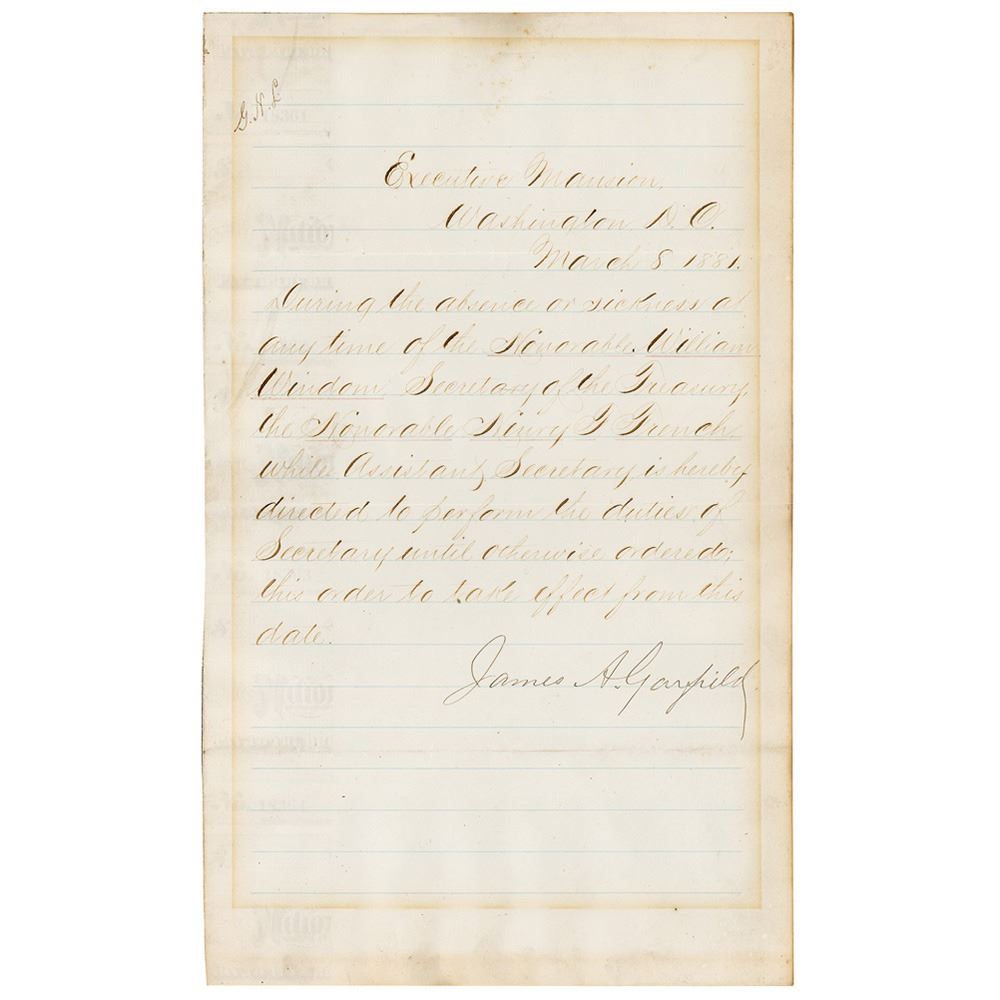 G. N. L.
Executive Mansion,
Washington, D. C.
March 8, 1881.
During the absence or sickness at
any time of the Honorable William
Windom Secretary of the Treasury,
the Honorable Henry F French,
while Assistant Secretary, is hereby
directed to perform the duties of
Secretary until otherwise ordered;
this order to take effect from this
date.
James A. Garfield